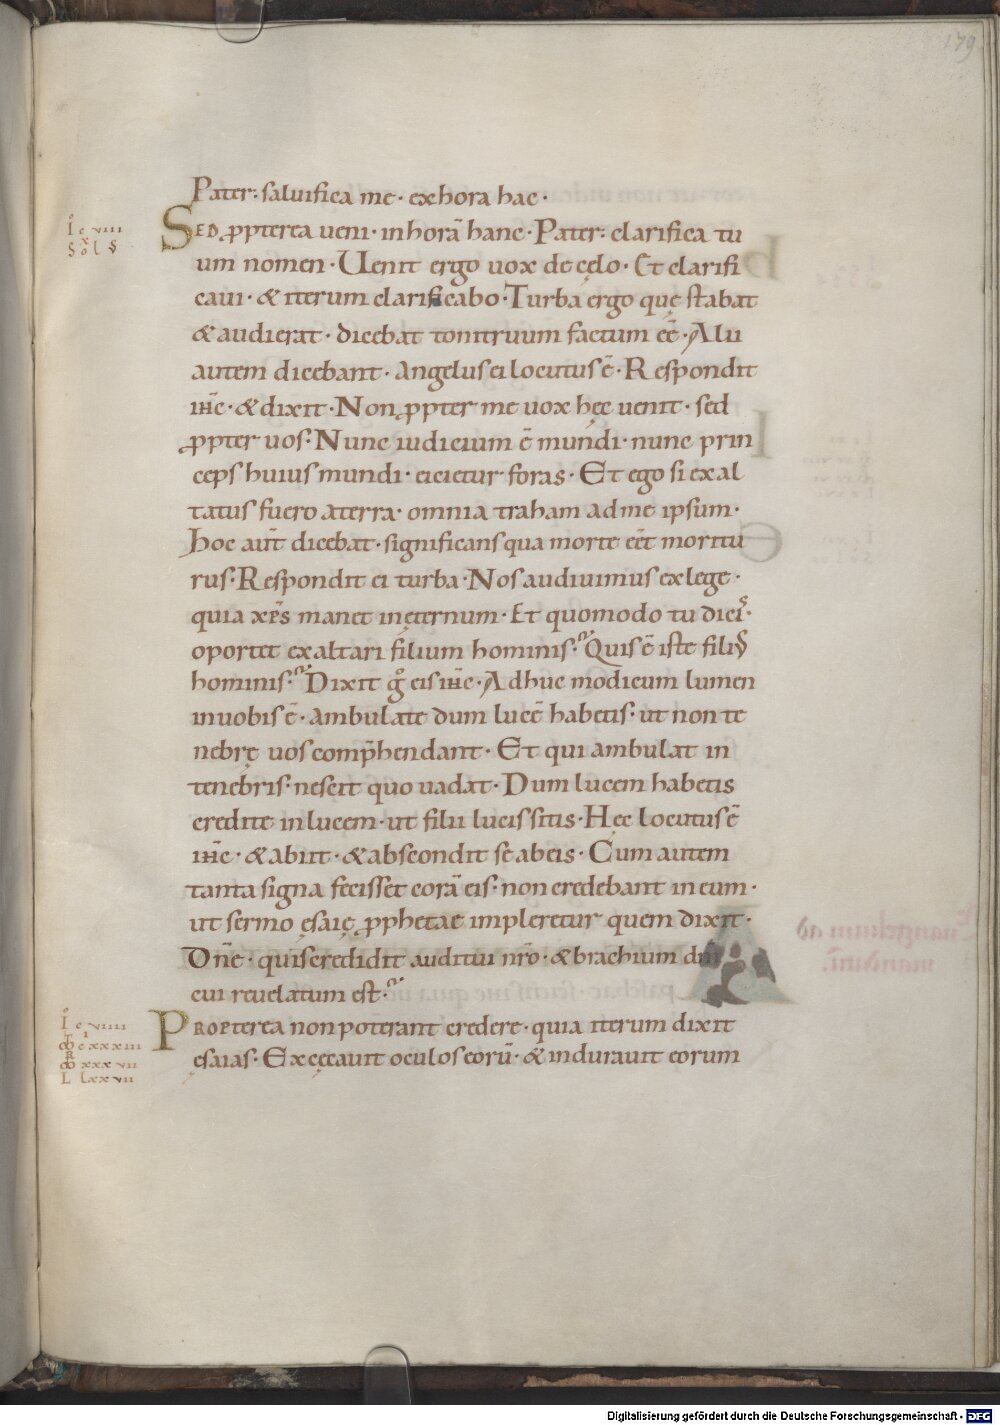 179
Pater· salvifica me· ex hora hac·
SED ꝓpterea veni· in horā hanc· Pater· clarifica tu
um nomen· Uenit ergo vox de cęlo· Et clarifi
cavi· & iterum clarificabo· Turba ergo quę stabat
& audierat· dicebat tonitruum factum eē· Alii
autem dicebant· Angelus ei locutus ē· Respondit
iħc· & dixit· Non ꝓpter me vox hęc venit· sed
ꝓpter vos· Nunc iudicium ē mundi· nunc prin
ceps huius mundi· eicietur foras· Et ego si exal
tatus fuero a terra· omnia traham ad me ipsum·
Hoc aut̄ dicebat· significans qua morte eēt moritu
rus· Respondit ei turba· Nos audivimus ex lege·
quia xp̄s manet in ęternum· Et quomodo tu dicis·
oportet exaltari filium hominis· Quis ē iste filiꝰ
hominis· Dixit gͦ eis iħc· Adhuc modicum lumen
in vobis ē· Ambulate dum lucē habetis· ut non te
nebrę vos comp̄hendant· Et qui ambulat in
tenebris· nescit quo vadat· Dum lucem habetis
credite in lucem· ut filii lucis sitis· Hęc locutus ē
iħc· & abiit· & abscondit se ab eis· Cum autem
tanta signa fecisset corā eis· non credebant in eum·
ut sermo ęsaię ꝓphetae impleretur quem dixit·
Dn̄e· quis credidit auditui nr̄o· & brachium dn̄i
cui revelatum est·
PROPterea non poterant credere· quia iterum dixit
ęsaias· Exęcavit oculos eorū· & induravit eorum
Io c viii
Sol
Io c viiii
c xxxiii
xxx vii
L lxx vii
Digitalisierung gefördert durch die Deutsche Forschungsgemeinschaft - DFG